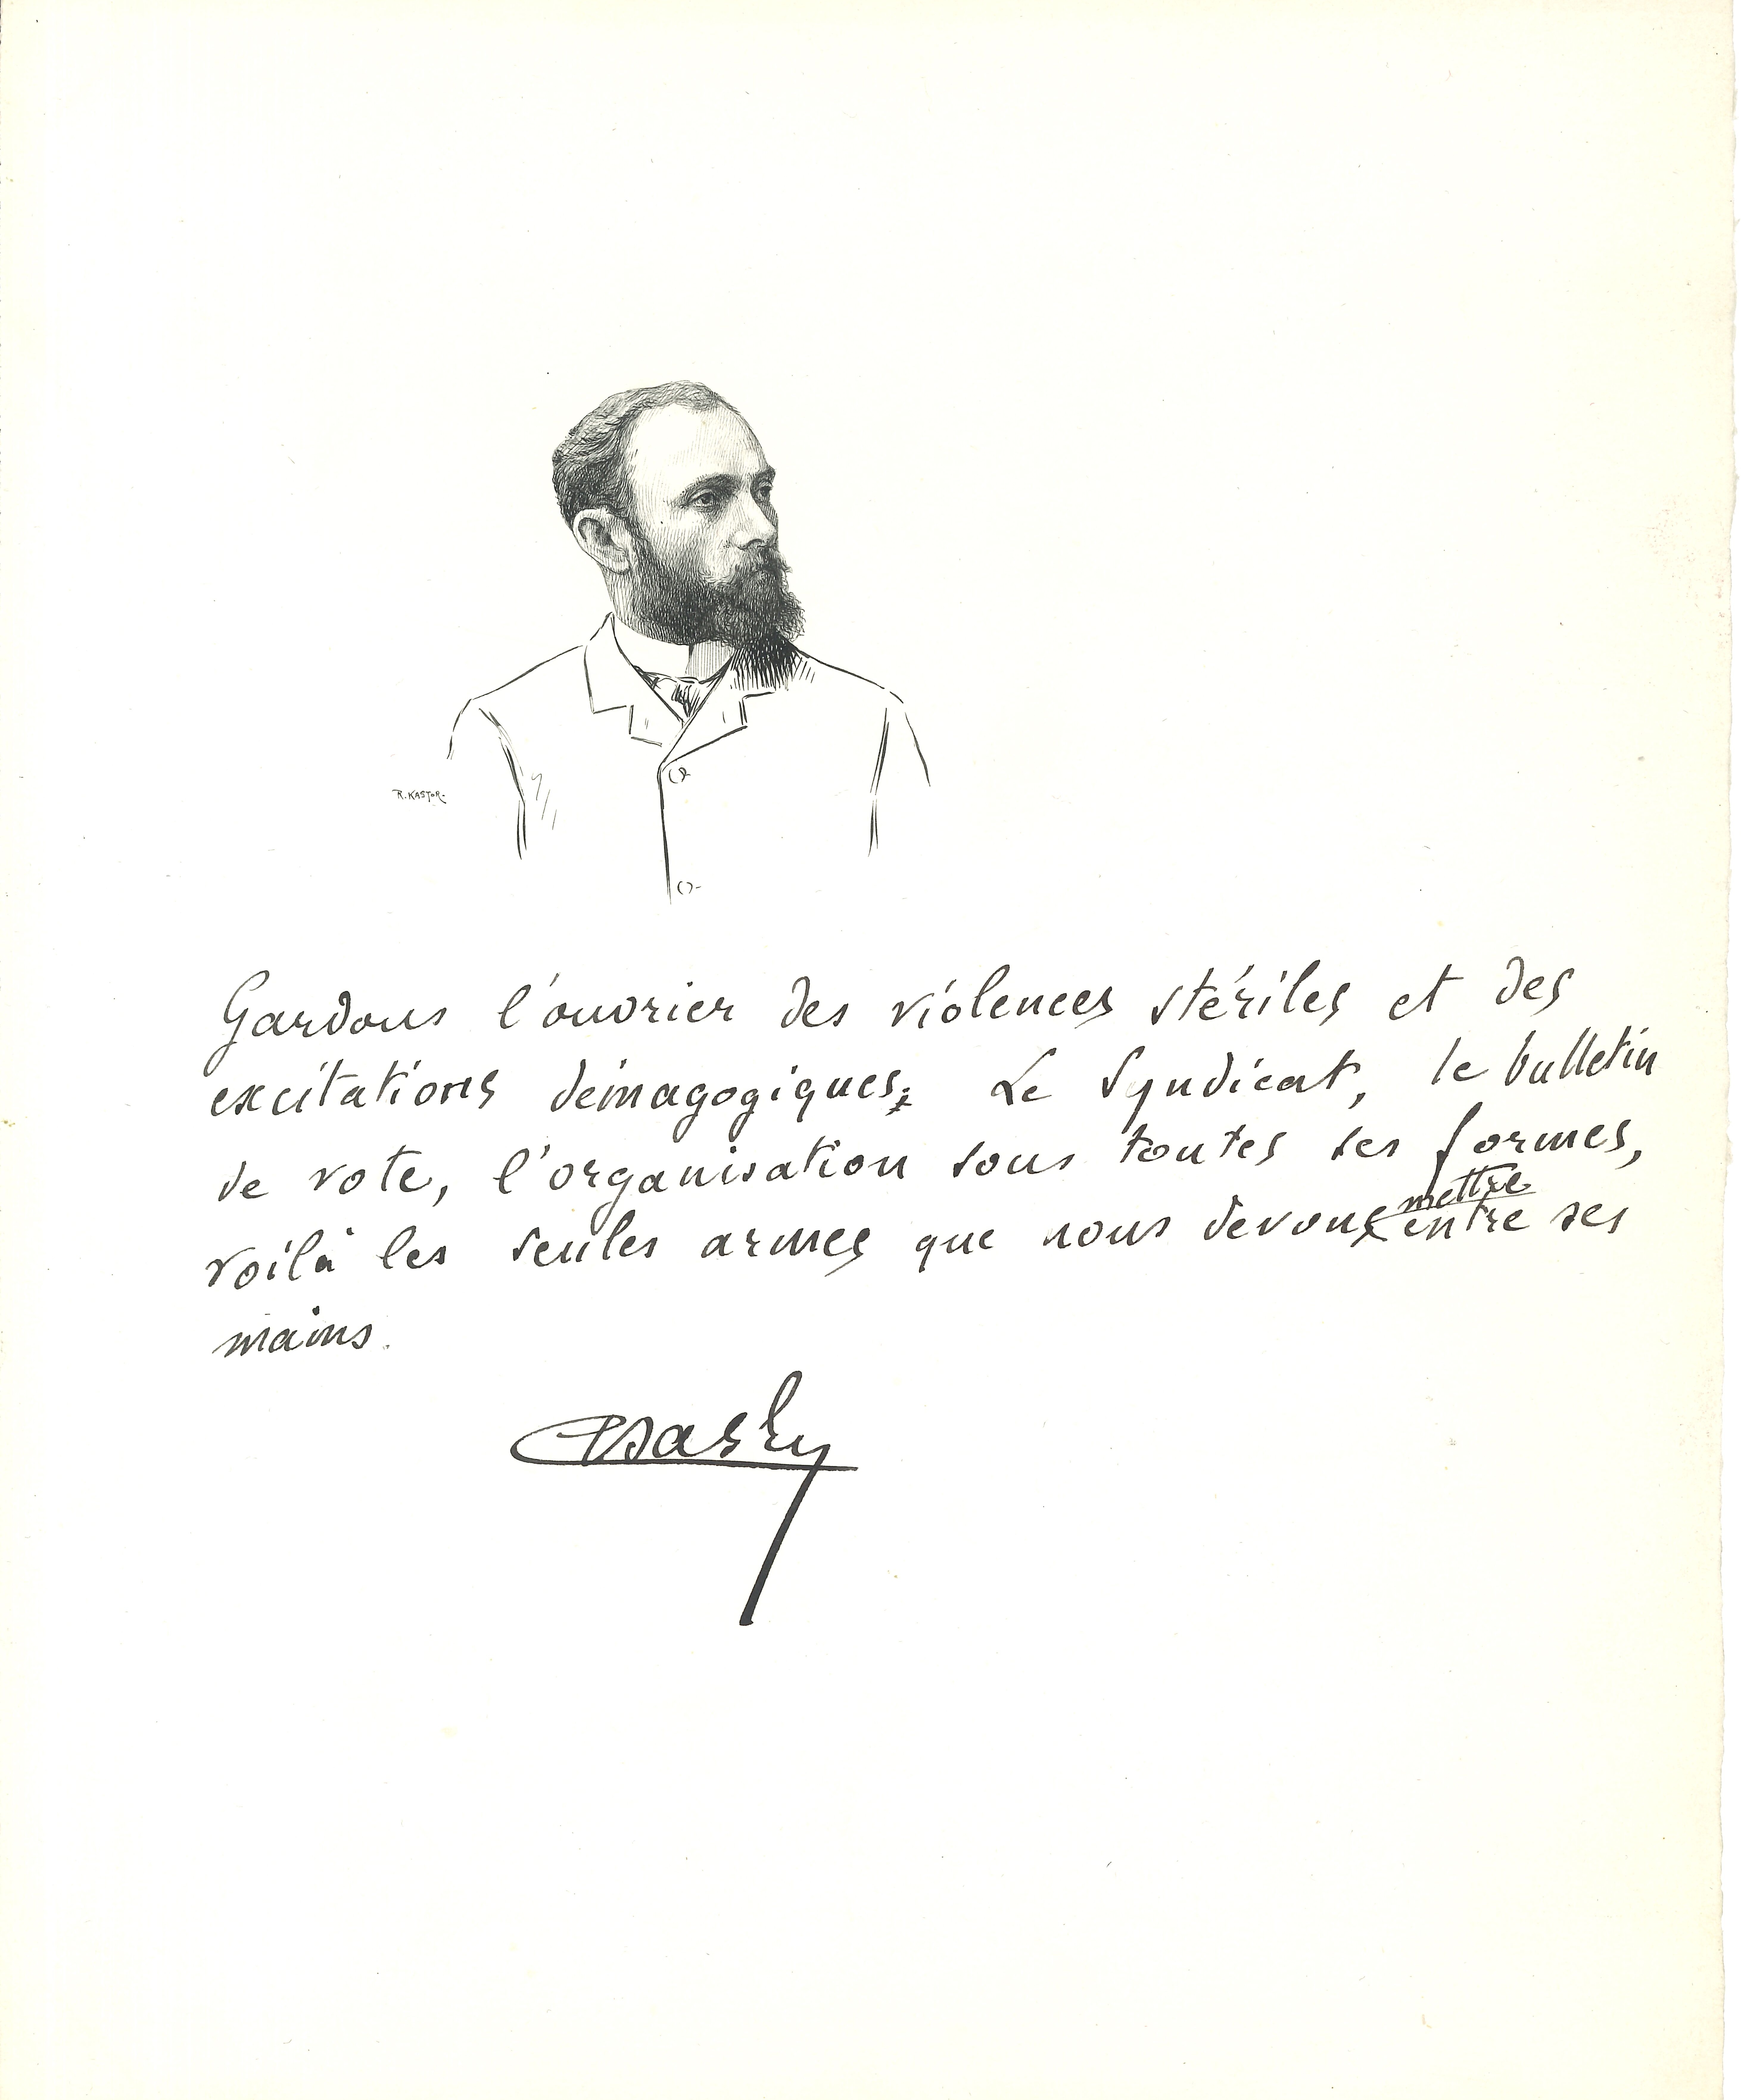 R. KASTOR.
Gardons l'ouvrier des violences stériles et des
excitations démagogiques; Le Syndicat, le bulletin
de vote, l'organisation sous toutes ses formes,
voilà les seules armes que nous devons mettre entre ses
mains.
Basly